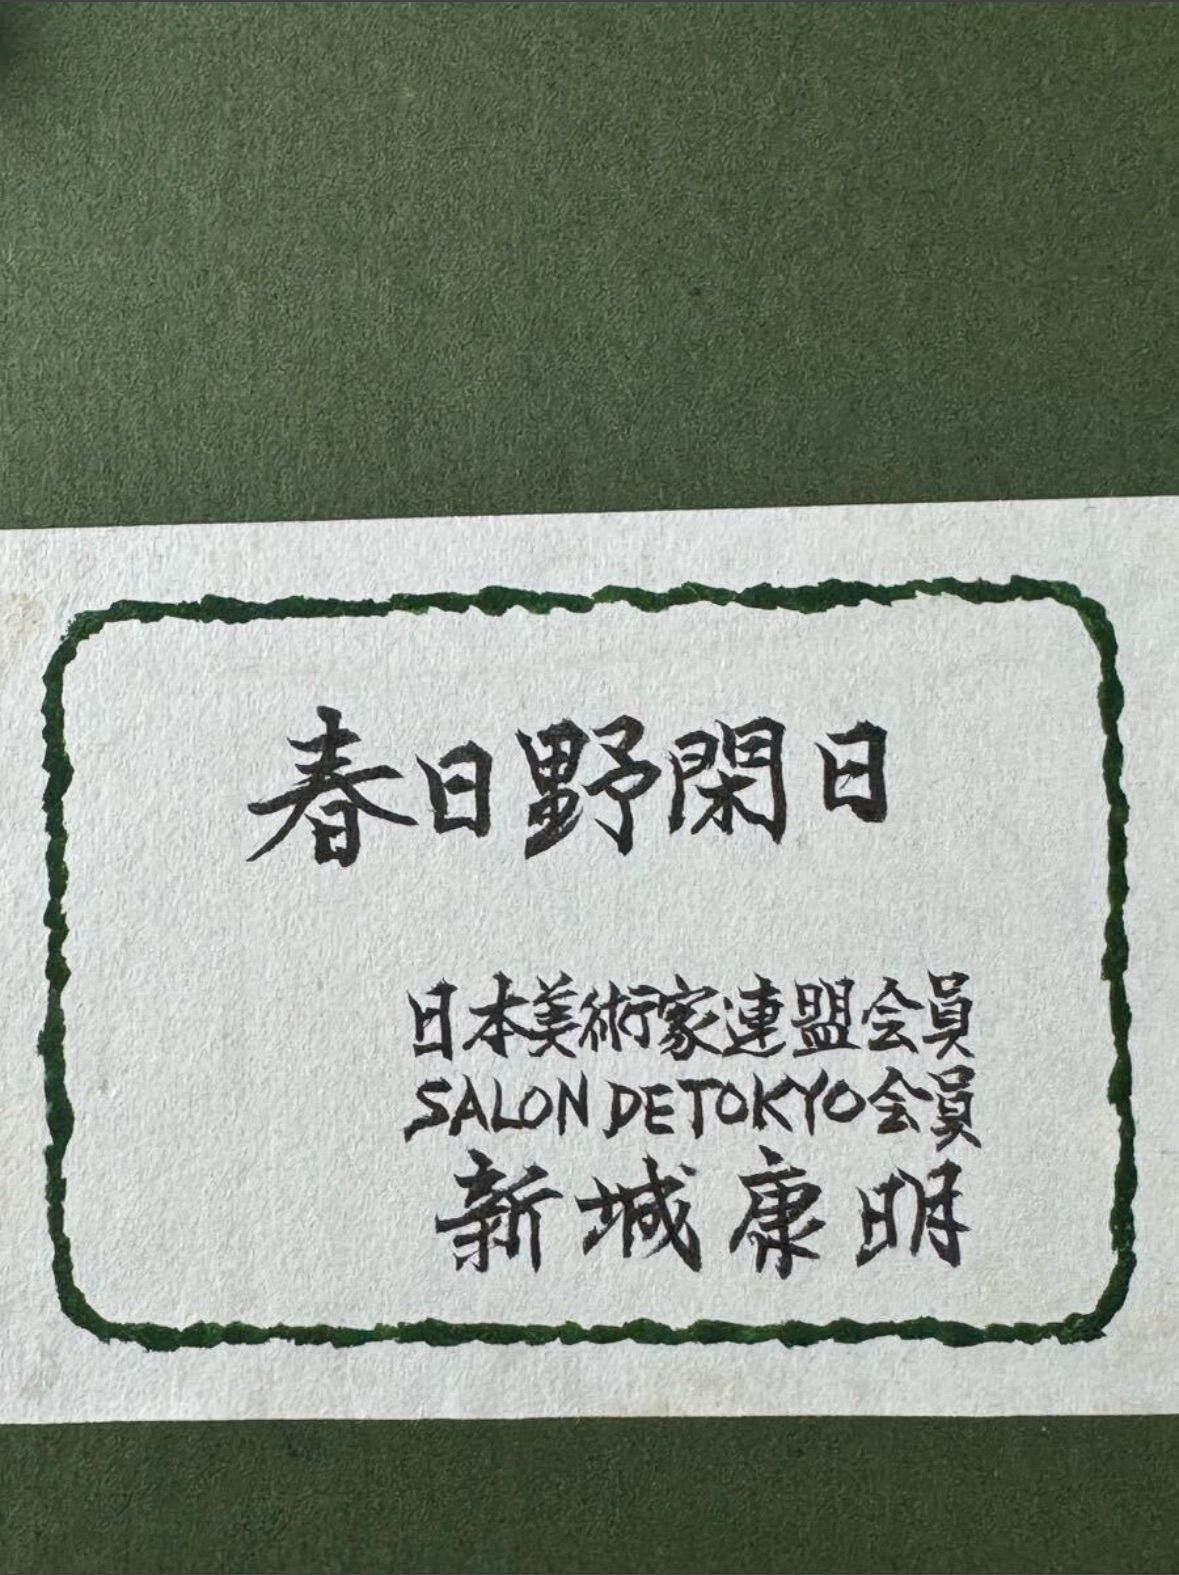 春日野閑日
日本美術家連盟会員
SALON DE TOKYO会員
新城康明